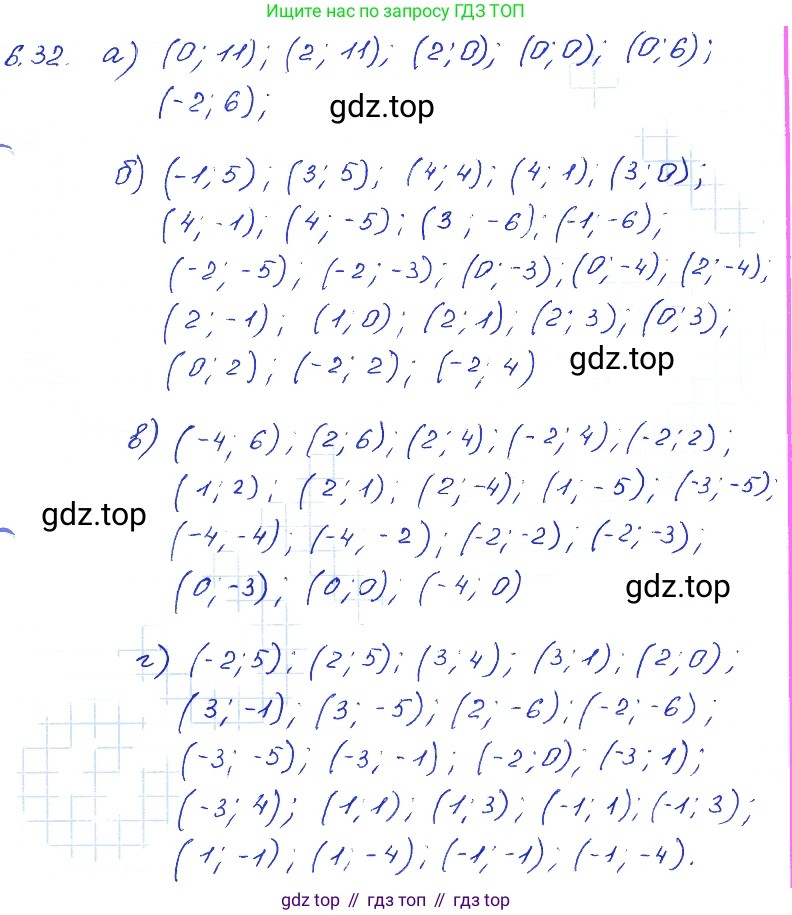 Ищите нас по запросу ГДЗ ТОП
6.32. а) (0; 11); (2; 11); (2; 0); (0; 0); (0; 6);
(-2; 6);
gdz.top
б) (-1; 5); (3; 5); (4; 4); (4; 1); (3; 0);
(4; -1); (4; -5); (3; -6); (-1; -6);
(-2; -5); (-2; -3); (0; -3); (0; -4); (2; -4);
(2; -1); (1; 0); (2; 1); (2; 3); (0; 3);
(0; 2); (-2; 2); (-2; 4)
gdz.top
в) (-4; 6); (2; 6); (2; 4); (-2; 4); (-2; 2);
(1; 2); (2; 1); (2; -4); (1; -5); (-3; -5);
gdz.top
(-4, -4); (-4, -2); (-2; -2); (-2; -3);
(0; -3); (0; 0); (-4; 0)
gdz.top
г) (-2; 5); (2; 5); (3; 4); (3; 1); (2; 0);
(3; -1); (3; -5); (2; -6); (-2; -6);
(-3; -5); (-3; -1); (-2; 0); (-3; 1);
(-3; 4); (1; 1); (1; 3); (-1; 1); (-1; 3);
(1; -1); (1; -4); (-1; -1); (-1; -4).
gdz top // гдз топ // gdz top